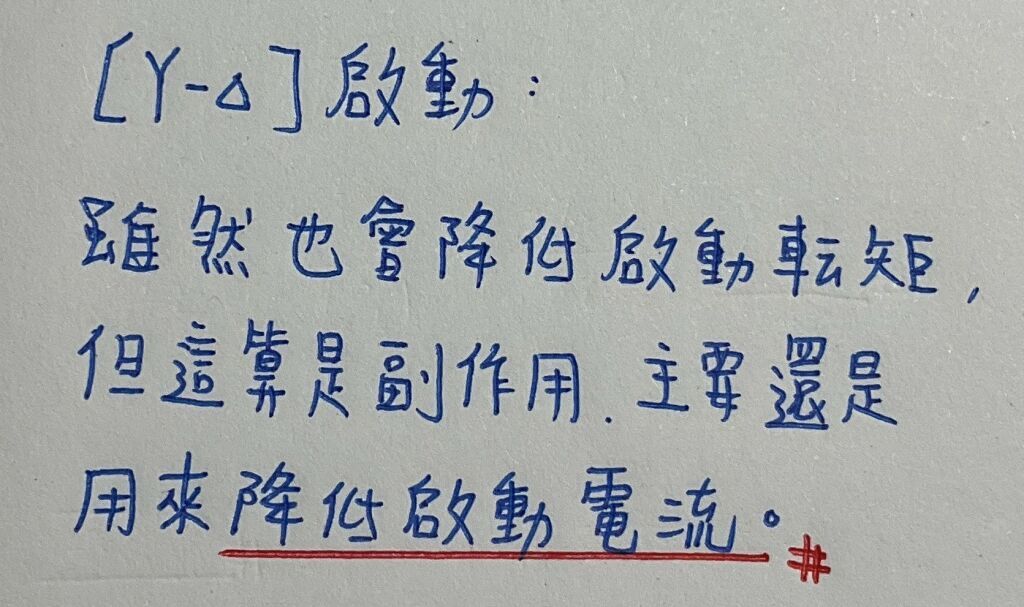 [Y-Δ]啟動:
雖然也會降低啟動転矩,
但這算是副作用.主要還是
用來降低啟動電流。#